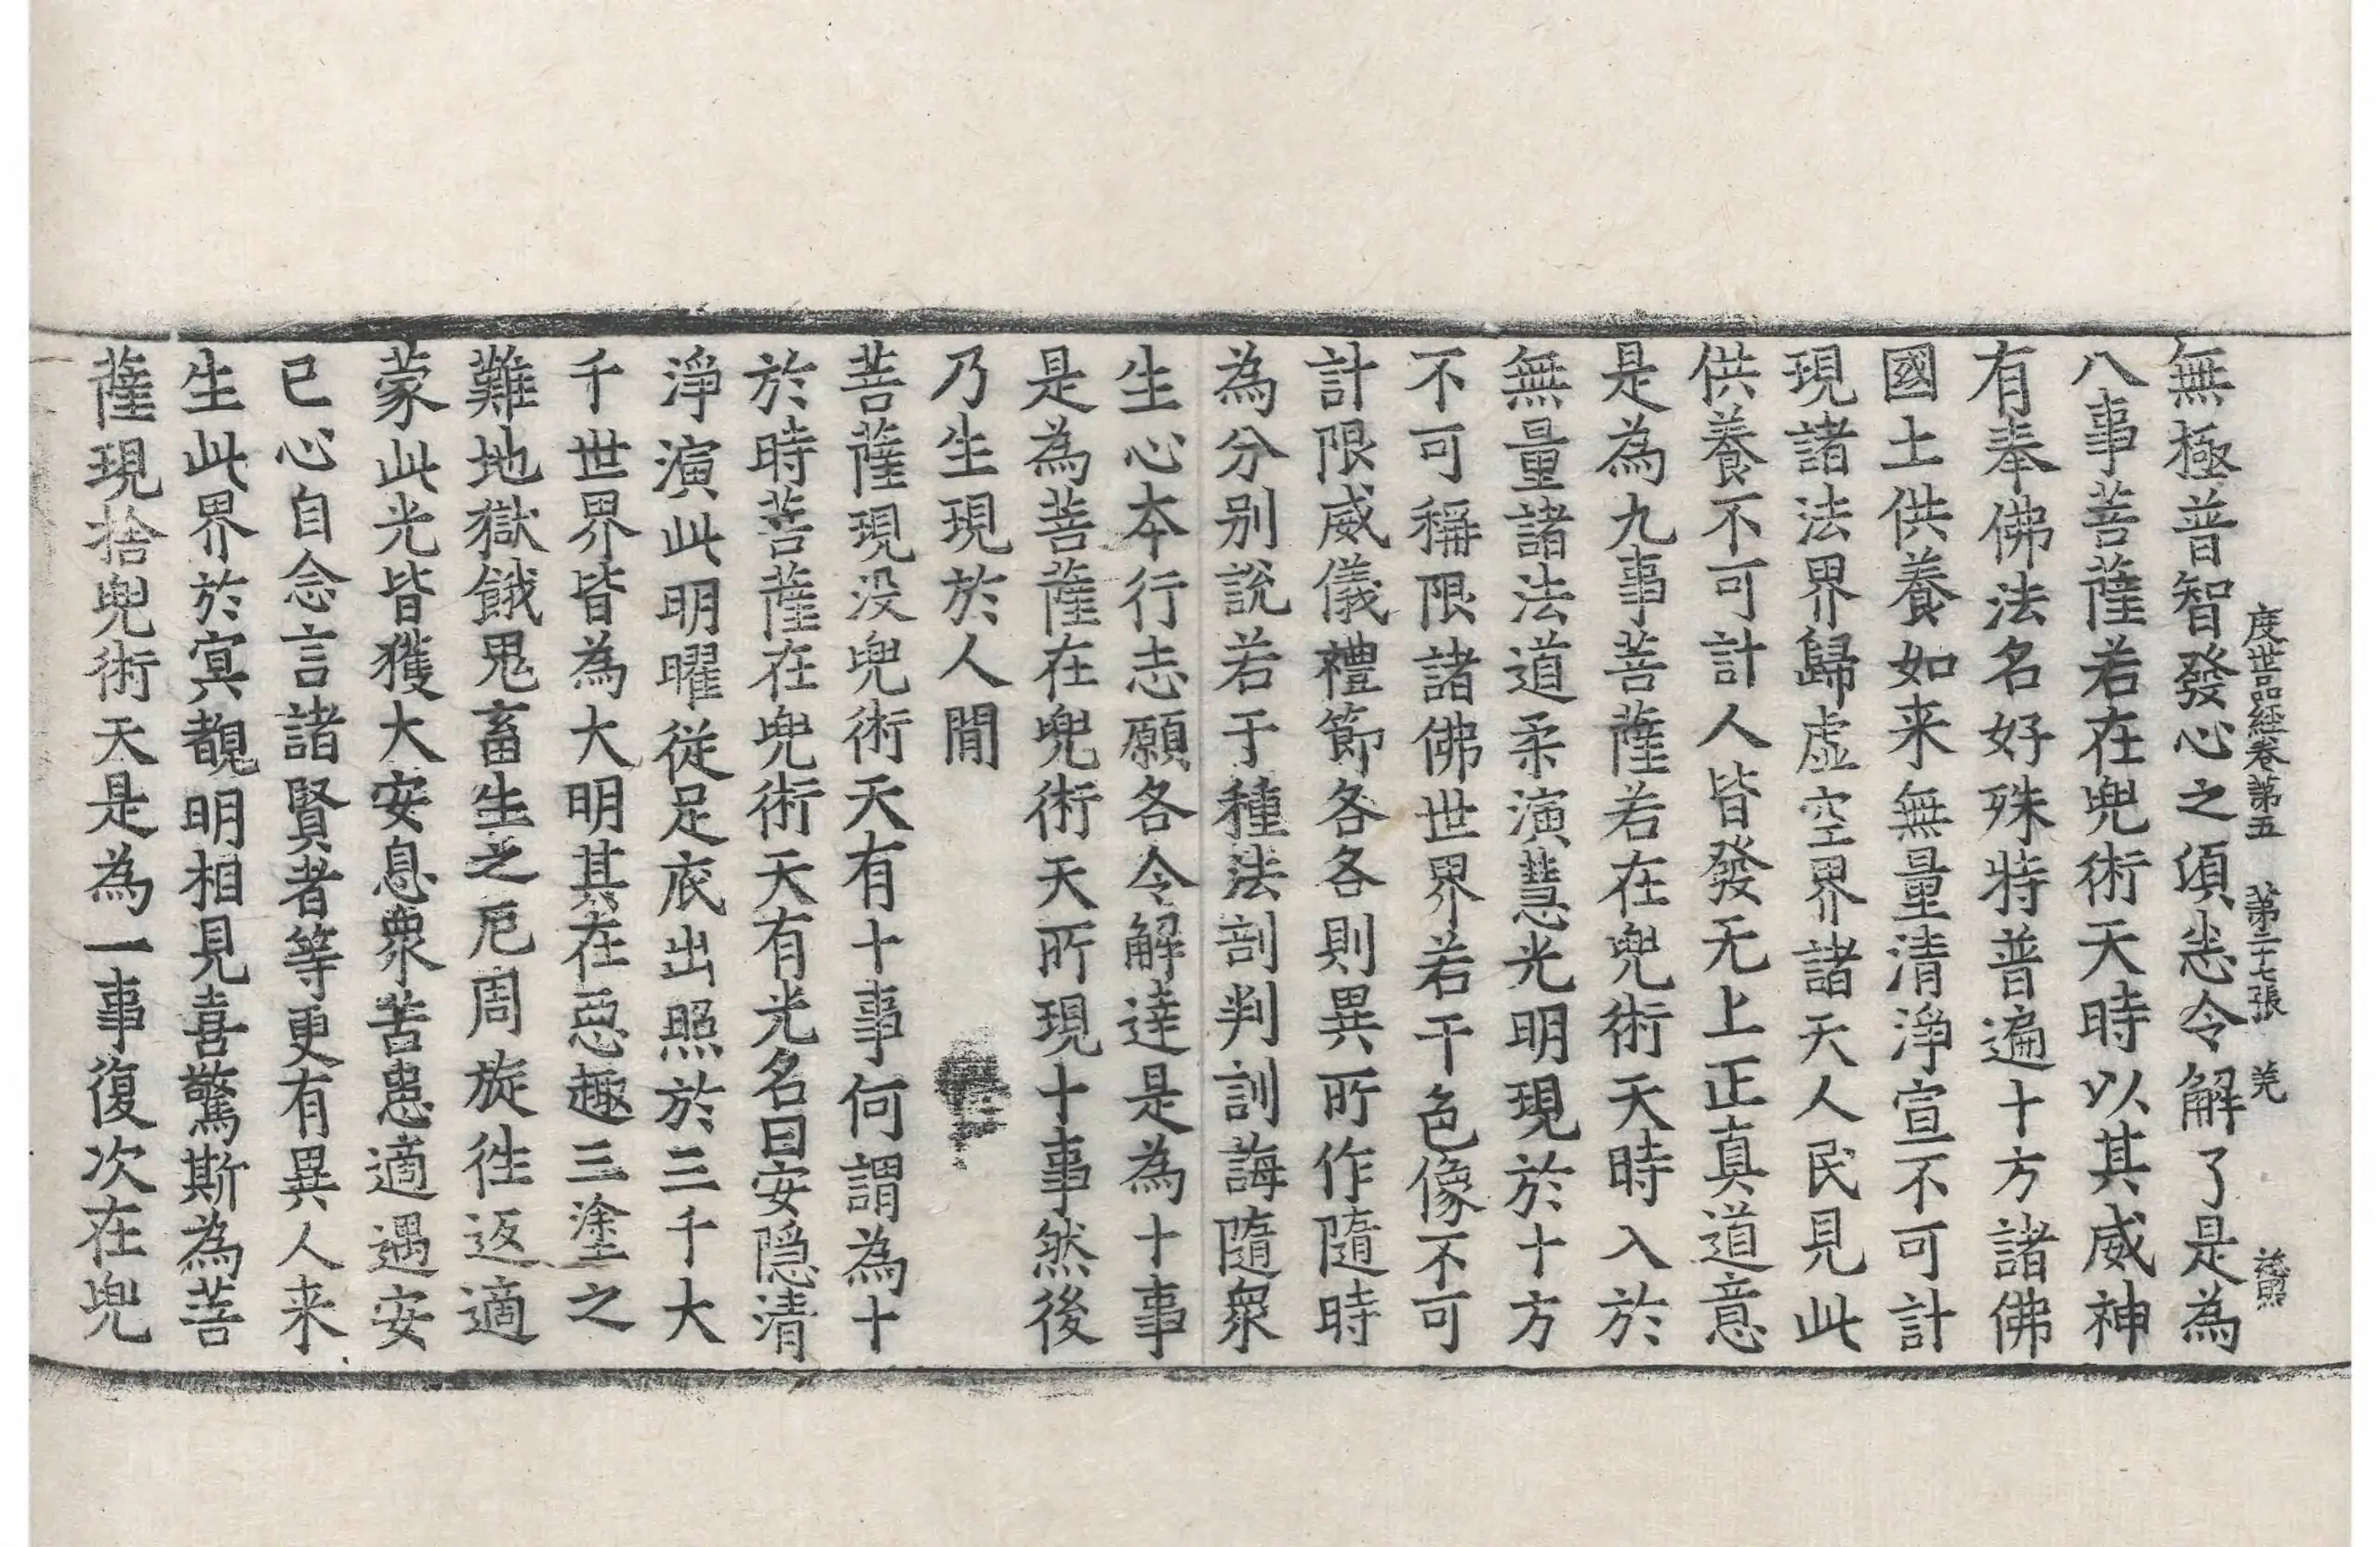 度世品經卷第五　第二十七張　羌　慈照
無極普智發心之頃悉令解了是為
八事菩薩若在兜術天時以其威神
有奉佛法名好殊特普遍十方諸佛
國土供養如来無量清淨宣不可計
現諸法界歸虛空界諸天人民見此
供養不可計人皆發无上正真道意
是為九事菩薩若在兜術天時入於
無量諸法道柔演慧光明現於十方
不可稱限諸佛世界若干色像不可
計限威儀禮節各各則異所作隨時
為分別說若干種法剖判訓誨隨衆
生心本行志願各令解達是為十事
是為菩薩在兜術天所現十事然後
乃生現於人間
菩薩現没兜術天有十事何謂為十
於時菩薩在兜術天有光名曰安隱清
淨演此明曜從足底出照於三千大
千世界皆為大明其在惡趣三塗之
難地獄餓鬼畜生之厄周旋徃返適
蒙此光皆獲大安息衆苦患適遇安
已心自念言諸賢者等更有異人来
生此界於冥覩明相見喜驚斯為菩
薩現捨兜術天是為一事復次在兜